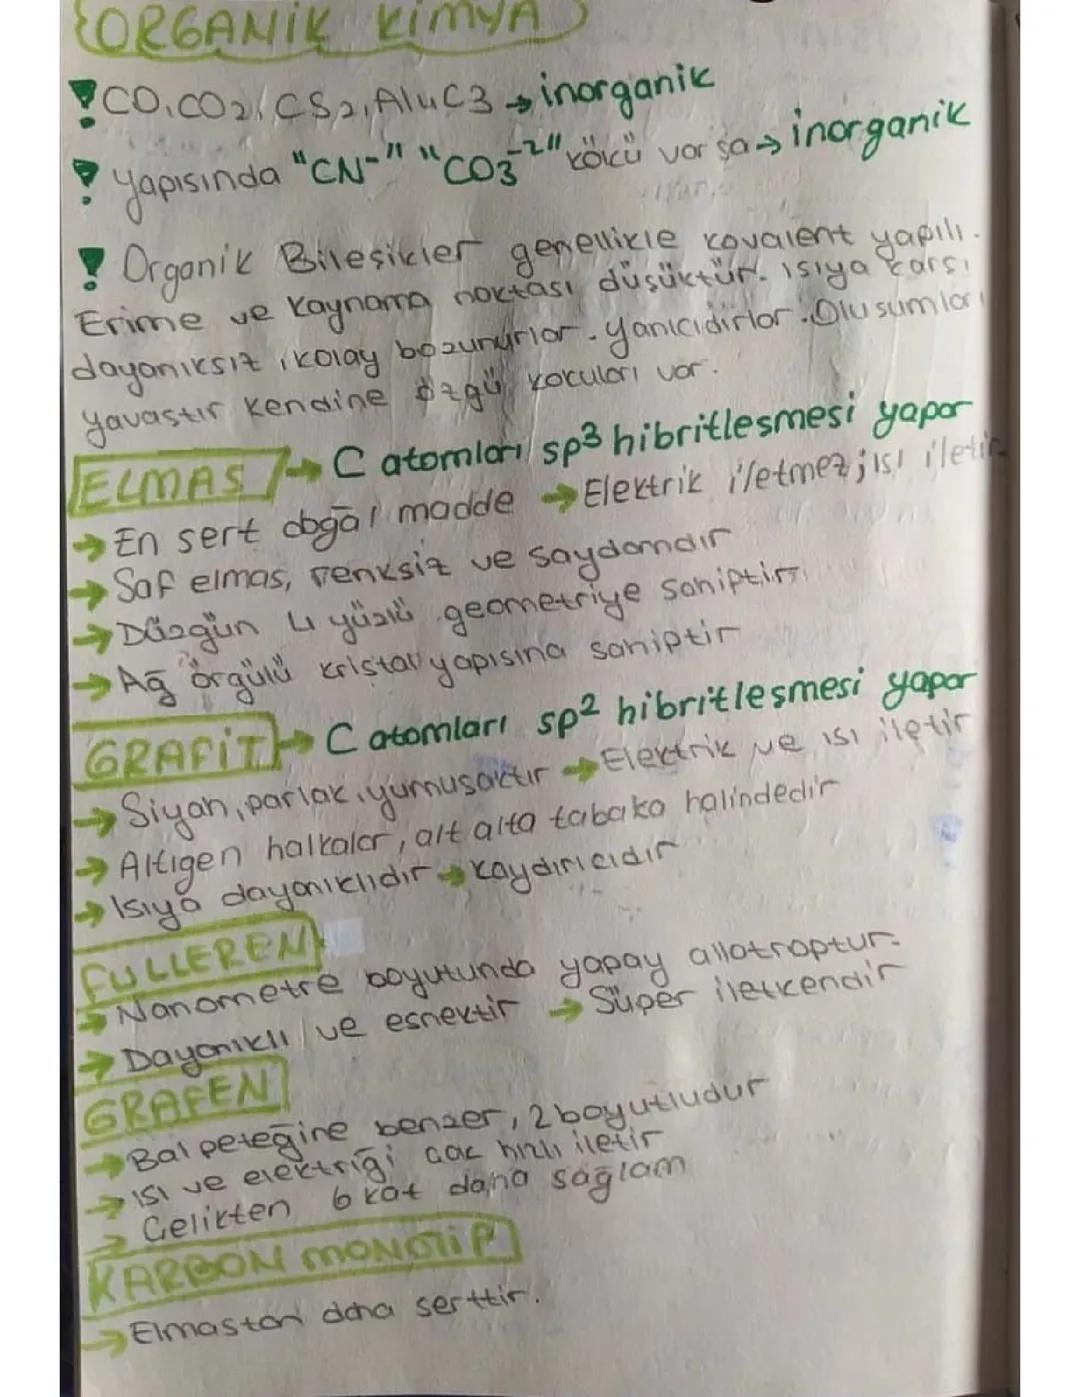 ORGANİK KİMYA
! CO, CO2, CS2, Al4C3 → inorganik
! Yapısında "CN-" "CO3-2" kökü varsa → inorganik
! Organik Bileşikler genellikle kovalent yapılı.
Erime ve Kaynama noktası düşüktür. Isıya karşı
dayanıksız, kolay bozunurlar. Yanıcıdırlar. Oluşumları
yavaştır kendine özgü kokuları var.
ELMAS → C atomları sp3 hibritleşmesi yapar
→ En sert doğal madde → Elektrik iletmez; ısı iletir
→ Saf elmas, renksiz ve saydamdır
→ Düzgün 4 yüzlü geometriye sahiptir
→ Ağ örgülü kristal yapısına sahiptir
GRAFİT → C atomları sp2 hibritleşmesi yapar
→ Siyah, parlak, yumuşaktır → Elektrik ve ısı iletir
→ Altıgen halkalar, alt alta tabaka halindedir
→ Isıya dayanıklıdır → kaydırıcıdır
FULLEREN
→ Nanometre boyutunda yapay allotroptur.
→ Dayanıklı ve esnektir → Süper iletkendir
GRAFEN
→ Bal peteğine benzer, 2 boyutludur
→ ısı ve elektriği çok hızlı iletir
→ Çelikten 6 kat daha sağlam
KARBON MONOTİP
→ Elmastan daha serttir.